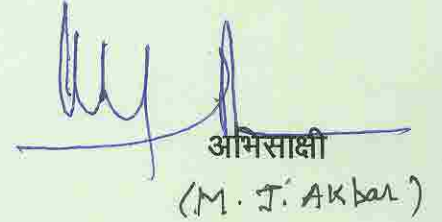 अभिसाक्षी
(M. J. Akbar)